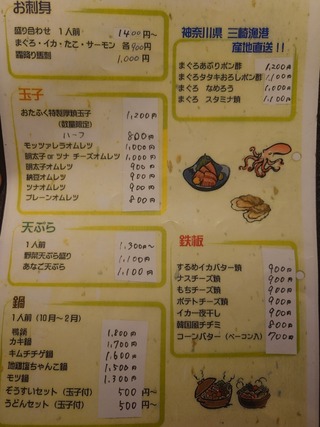 お刺身
盛り合わせ 1人前 1400円〜
まぐろ・イカ・たこ・サーモン 各900円
霜降り馬刺 1,000円
神奈川県 三崎漁港
産地直送!!
まぐろあぶりポン酢 1,200円
まぐろタタキおろしポン酢 1,100円
まぐろ なめろう 1,000円
まぐろ スタミナ焼 1,100円
玉子
おたふく特製厚焼玉子 1,200円
(数量限定)
ハーフ 800円
モッツァレラオムレツ 1,000円
明太子 or ツナ チーズオムレツ 1,000円
明太子オムレツ 900円
納豆オムレツ 900円
ツナオムレツ 900円
プレーンオムレツ 800円
天ぷら
1人前 1,300円〜
野菜天ぷら盛り 1,100円
あなご天ぷら 1,100円
鉄板
するめイカバター焼 900円
ナスチーズ焼 900円
もちチーズ焼 900円
ポテトチーズ焼 900円
イカ一夜干し 900円
韓国風チヂミ 800円
コーンバター(ベーコン入) 700円
鍋
1人前(10月〜2月)
鴨鍋 1,800円
カキ鍋 1,700円
キムチチゲ鍋 1,600円
地鶏塩ちゃんこ鍋 1,500円
モツ鍋 1,300円
ぞうすいセット(玉子付) 500円〜
うどんセット(玉子付) 500円〜